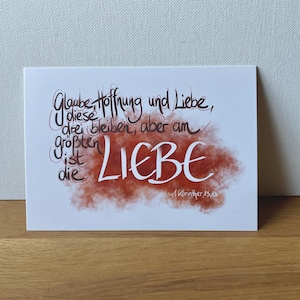 Glaube, Hoffnung und Liebe,
diese
drei bleiben, aber am
größten
ist
die LIEBE
1. Korinther 13,13